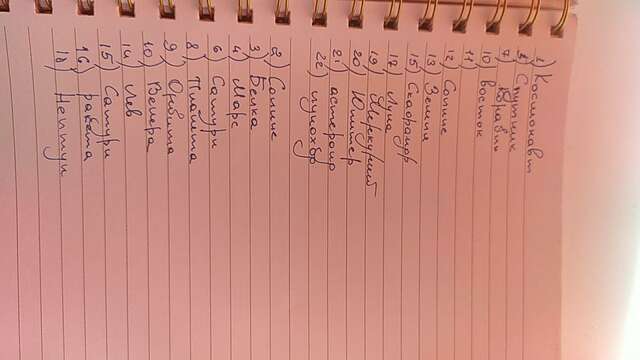 1) Космонавт
8) Спутник
7) Корабль
10) восток
11)
12) Сопние
13) Земля
15) Скафандр
17) Луна
19) Меркурий
20) Юпитер
21) астероид
22) луноход
2) Сопние
3) Белка
4) Марс
6) Сатурн
8) Планета
9) Орбита
10) Венера
14) Лев
15) Сатурн
16) ракета
18) Нептун